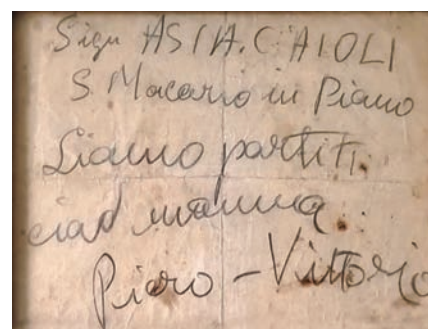 Sign ASIA.CAIOLI
S Macario in Piano
Siamo partiti
ciao mamma
Piero - Vittorio